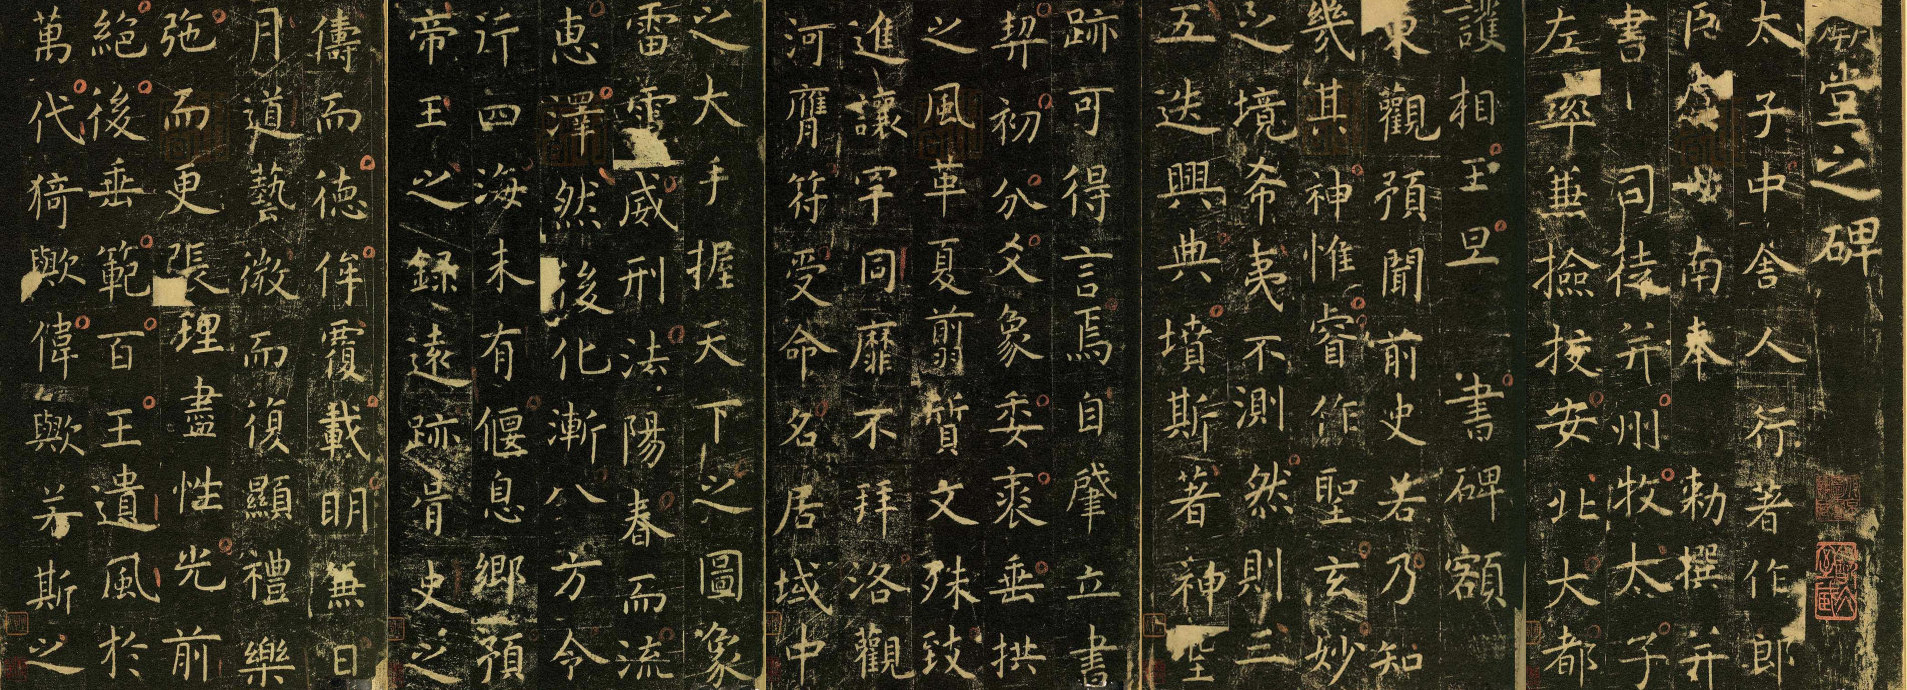 廟堂之碑
太子中舍人行著作郎
臣虞世南奉 勅撰并
書 司徒并州牧太子
左率兼檢挍安北大都
護相王旦 書碑額
東觀預聞前史若乃知
幾其神惟睿作聖玄妙
之境希夷不測然則三
五迭興典墳斯著神聖
跡可得言焉自肇立書
契初分爻象委裘垂拱
之風革夏翦質文殊致
進讓罕同靡不拜洛觀
河膺符受命名居域中
之大手握天下之圖象
雷電威刑法陽春而流
惠澤然後化漸八方令
行四海未有偃息鄉預
帝王之錄遠跡胥史之
儔而德侔覆載明兼日
月道藝微而復顯禮樂
弛而更張理盡性光前
絕後垂範百王遺風於
萬代猗歟偉歟若斯之